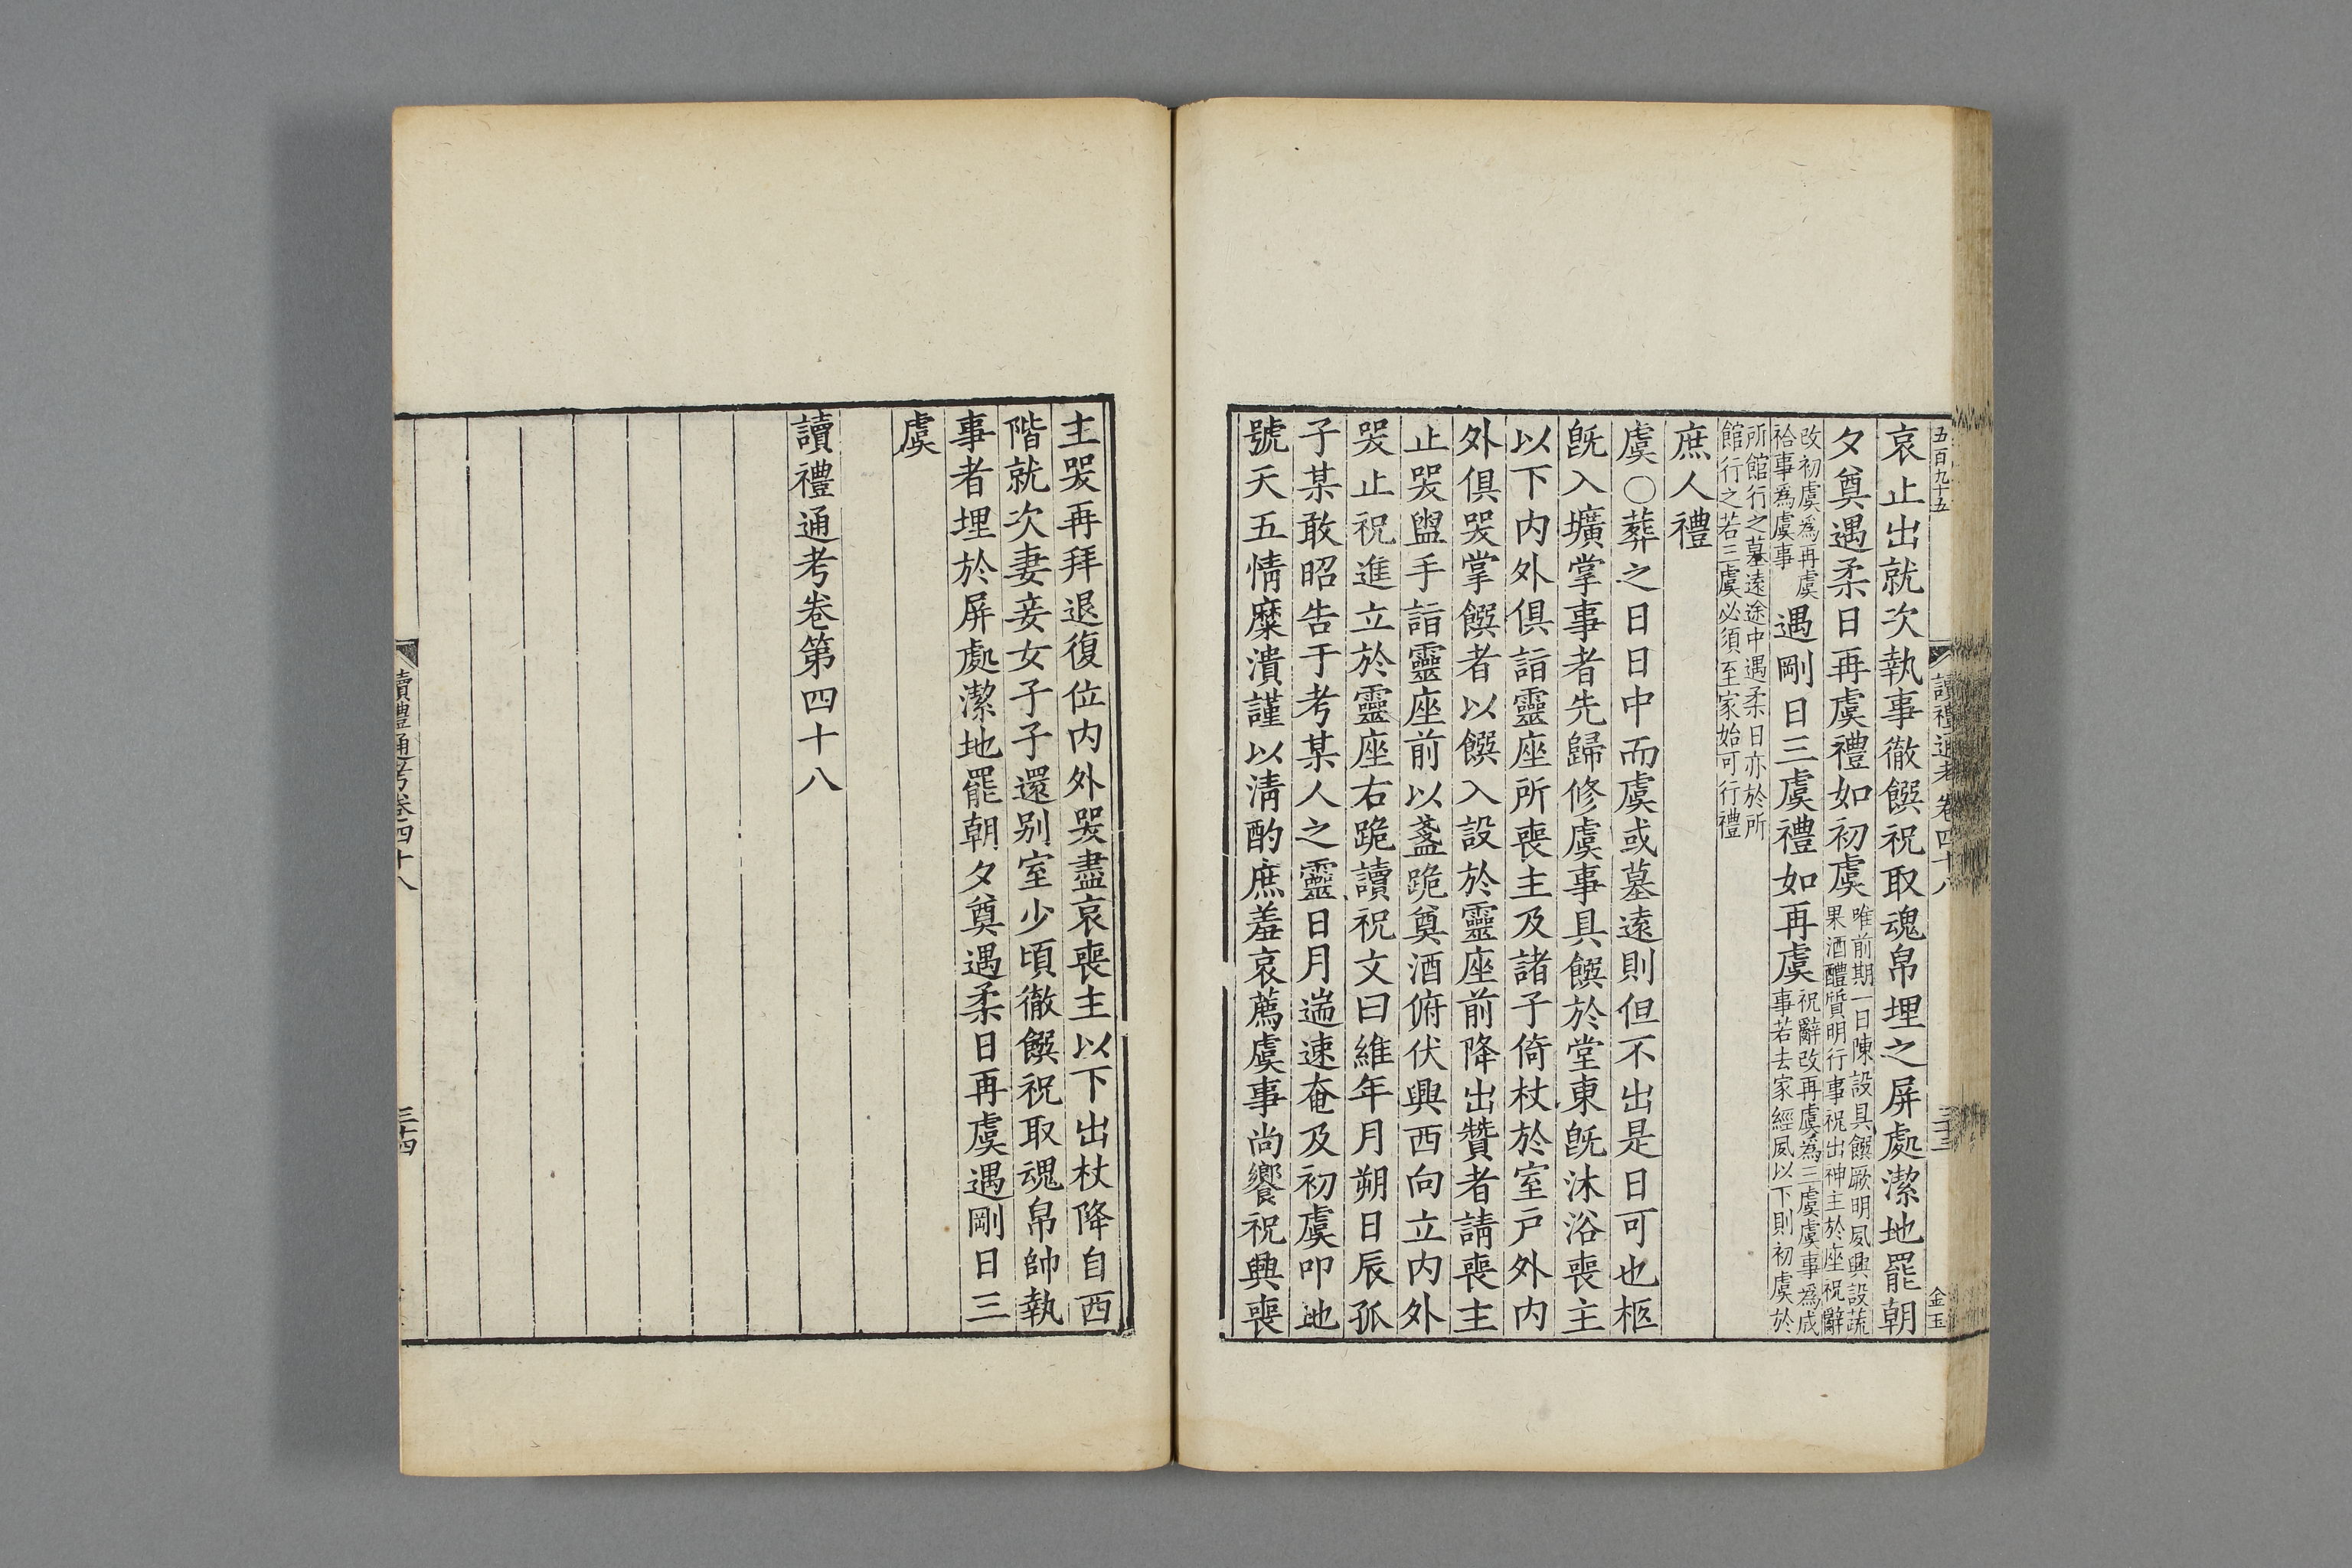 五百九十五
讀禮通考卷四十八
三十三
金玉
哀止出就次執事徹饌祝取魂帛埋之屏處潔地罷朝
夕奠遇柔日再虞禮如初虞唯前期一日陳設具饌厥明夙興設蔬
果酒醴質明行事祝出神主於座祝辭
改初虞為再虞
祫事為虞事遇剛日三虞禮如再虞祝辭改再虞為三虞虞事為成
事若去家經夙以下則初虞於
所館行之墓遠途中遇柔日亦於所
館行之若三虞必須至家始可行禮
庶人禮
虞○葬之日日中而虞或墓遠則但不出是日可也柩
旣入壙掌事者先歸修虞事具饌於堂東旣沐浴喪主
以下內外俱詣靈座所喪主及諸子倚杖於室戶外內
外俱哭掌饌者以饌入設於靈座前降出贊者請喪主
止哭盥手詣靈座前以盞跪奠酒俯伏興西向立內外
哭止祝進立於靈座右跪讀祝文曰維年月朔日辰孤
子某敢昭告于考某人之靈日月遄速奄及初虞叩地
號天五情糜潰謹以清酌庶羞哀薦虞事尚饗祝興喪
主哭再拜退復位內外哭盡哀喪主以下出杖降自西
階就次妻妾女子子還别室少頃徹饌祝取魂帛帥執
事者埋於屏處潔地罷朝夕奠遇柔日再虞遇剛日三
虞
讀禮通考卷第四十八
讀禮通考卷四十八
三十四